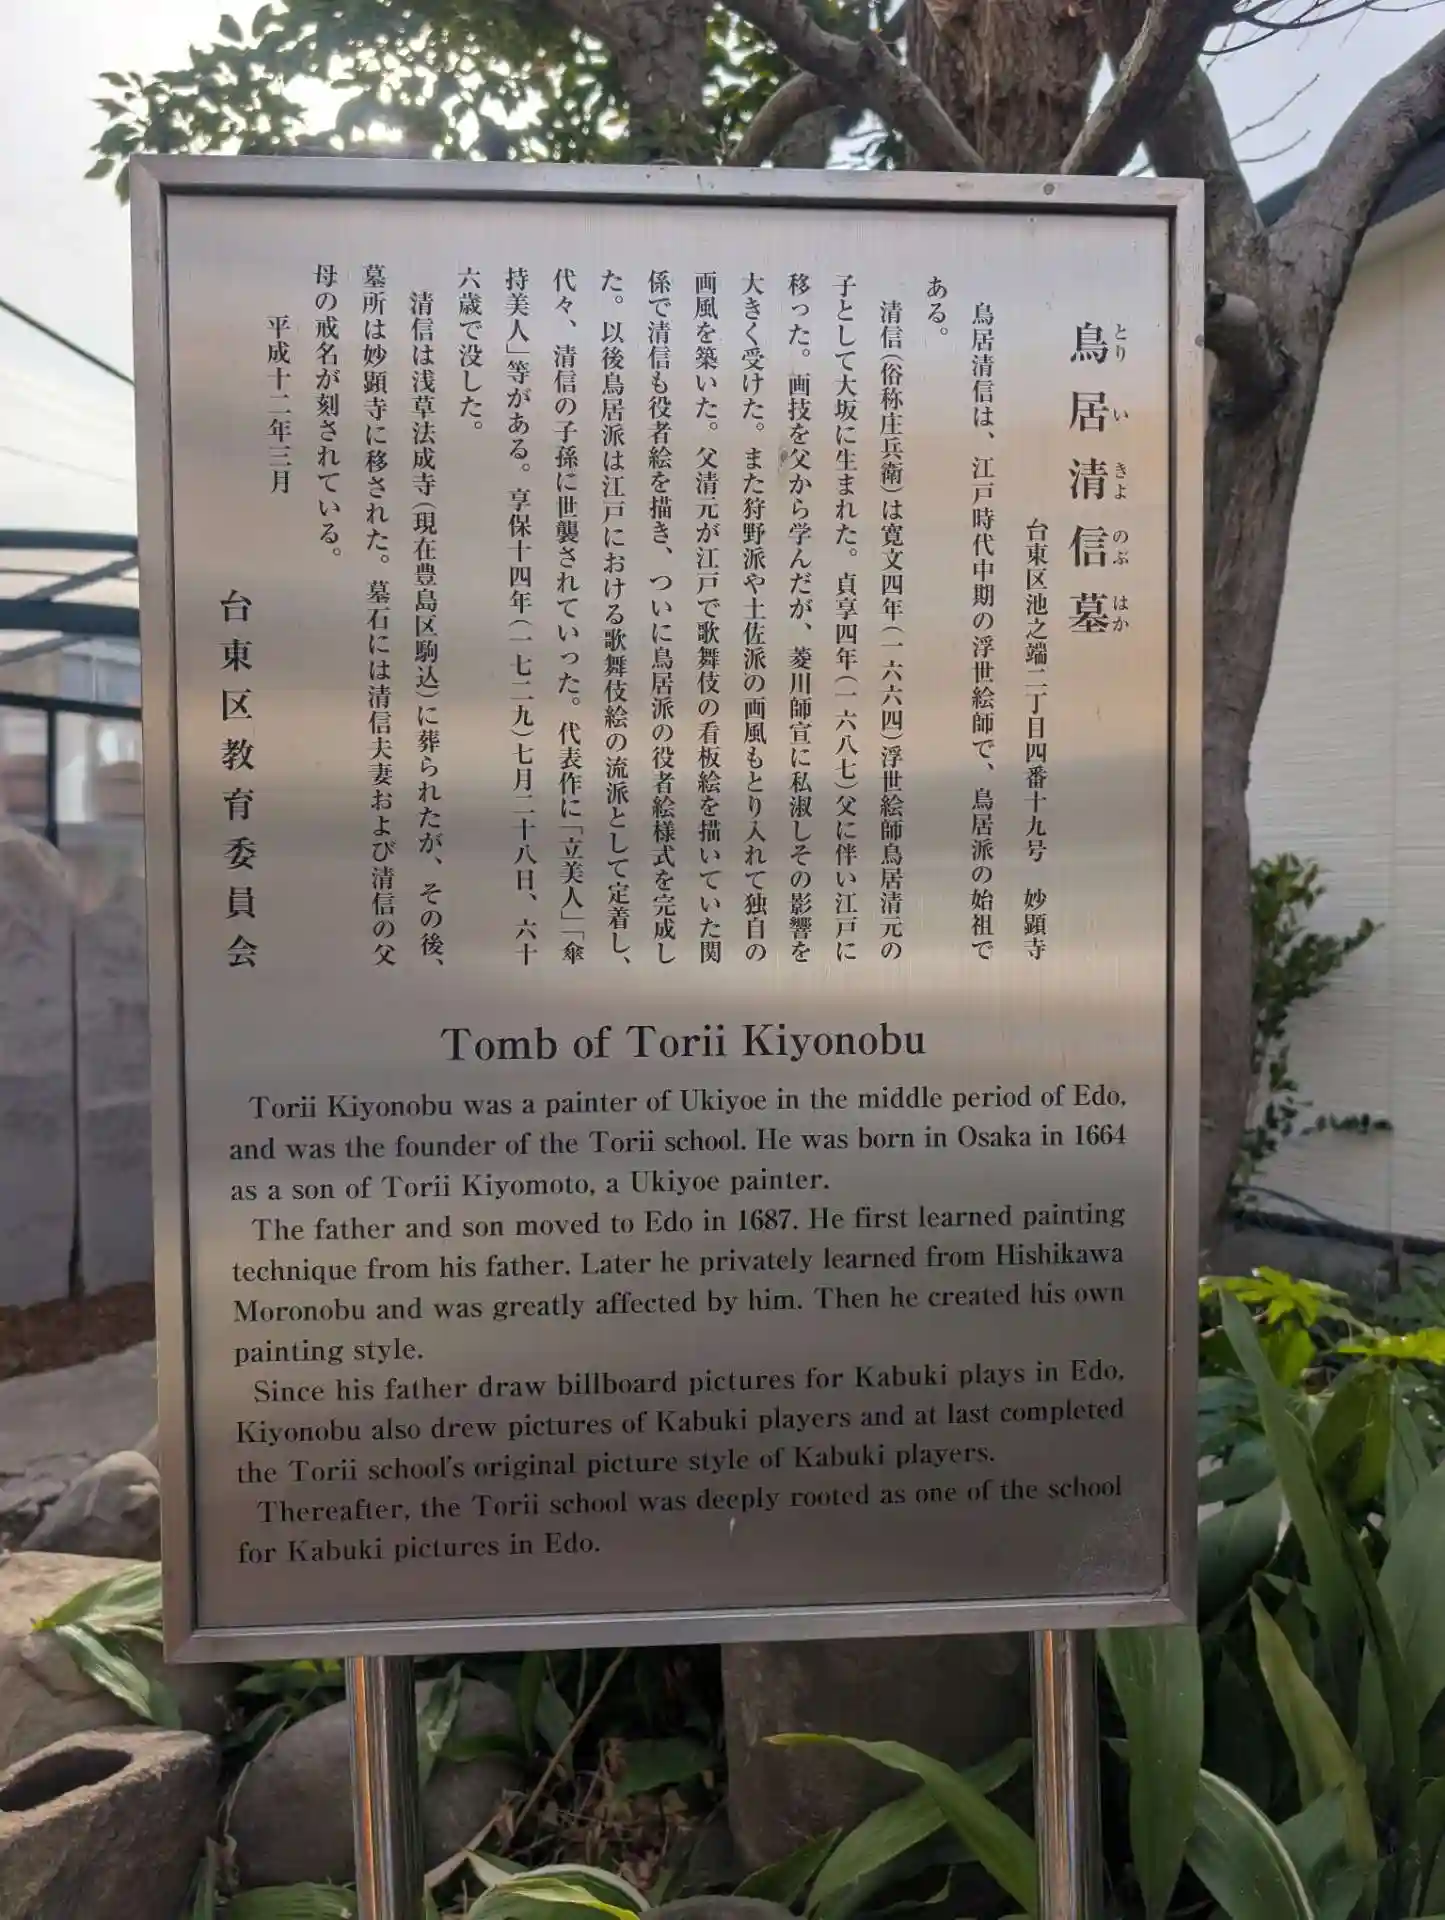 鳥居清信墓
とりいきよのぶはか
台東区池之端二丁目四番十九号　妙顕寺
鳥居清信は、江戸時代中期の浮世絵師で、鳥居派の始祖で
ある。
清信(俗称庄兵衛)は寛文四年(一六六四)浮世絵師鳥居清元の
子として大坂に生まれた。貞享四年(一六八七)父に伴い江戸に
移った。画技を父から学んだが、菱川師宣に私淑しその影響を
大きく受けた。また狩野派や土佐派の画風もとり入れて独自の
画風を築いた。父清元が江戸で歌舞伎の看板絵を描いていた関
係で清信も役者絵を描き、ついに鳥居派の役者絵様式を完成し
た。以後鳥居派は江戸における歌舞伎絵の流派として定着し、
代々、清信の子孫に世襲されていった。代表作に「立美人」「傘
持美人」等がある。享保十四年(一七二九)七月二十八日、六十
六歳で没した。
清信は浅草法成寺(現在豊島区駒込)に葬られたが、その後、
墓所は妙顕寺に移された。墓石には清信夫妻および清信の父
母の戒名が刻されている。
平成十二年三月
台東区教育委員会
Tomb of Torii Kiyonobu
Torii Kiyonobu was a painter of Ukiyoe in the middle period of Edo,
and was the founder of the Torii school. He was born in Osaka in 1664
as a son of Torii Kiyomoto, a Ukiyoe painter.
The father and son moved to Edo in 1687. He first learned painting
technique from his father. Later he privately learned from Hishikawa
Moronobu and was greatly affected by him. Then he created his own
painting style.
Since his father draw billboard pictures for Kabuki plays in Edo,
Kiyonobu also drew pictures of Kabuki players and at last completed
the Torii school's original picture style of Kabuki players.
Thereafter, the Torii school was deeply rooted as one of the school
for Kabuki pictures in Edo.